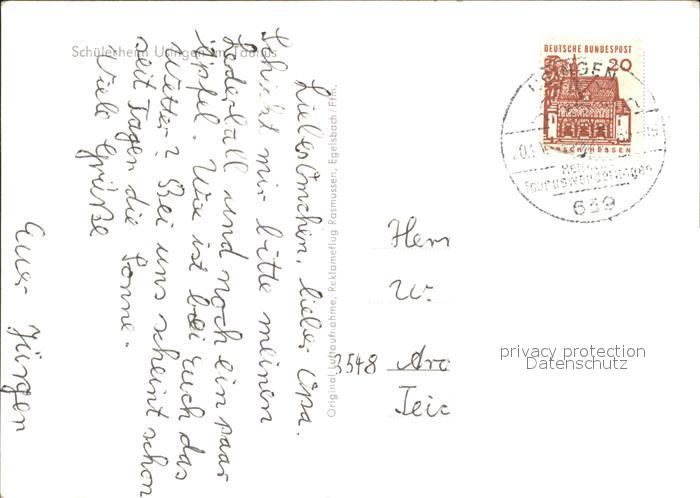 Schülerheim Usingen im Taunus
Liebes Omchen, lieber Opa.
Schickt mir bitte meinen
Lederball und noch ein paar
Äpfel. Wie ist bei Euch das
Wetter? Bei uns scheint schon
seit Tagen die Sonne.
Viele Grüße
Euer Jürgen
Original Luftaufnahme, Reklameflug Rasmussen, Egelsbach/Ffm.
DEUTSCHE BUNDESPOST
20
LORSCH/HESSEN
USINGEN
Tauruswanderungen
639
Herrn
W.
3548 Aro
Teic
privacy protection
Datenschutz